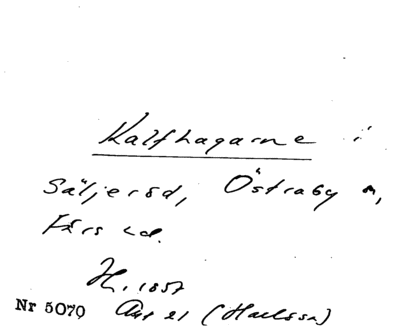 Kalfhagarne i
Säljeröd, Östraby sn,
Färs hd.
H. 1857
Nr 5070 Akt 21 (Karlsson)